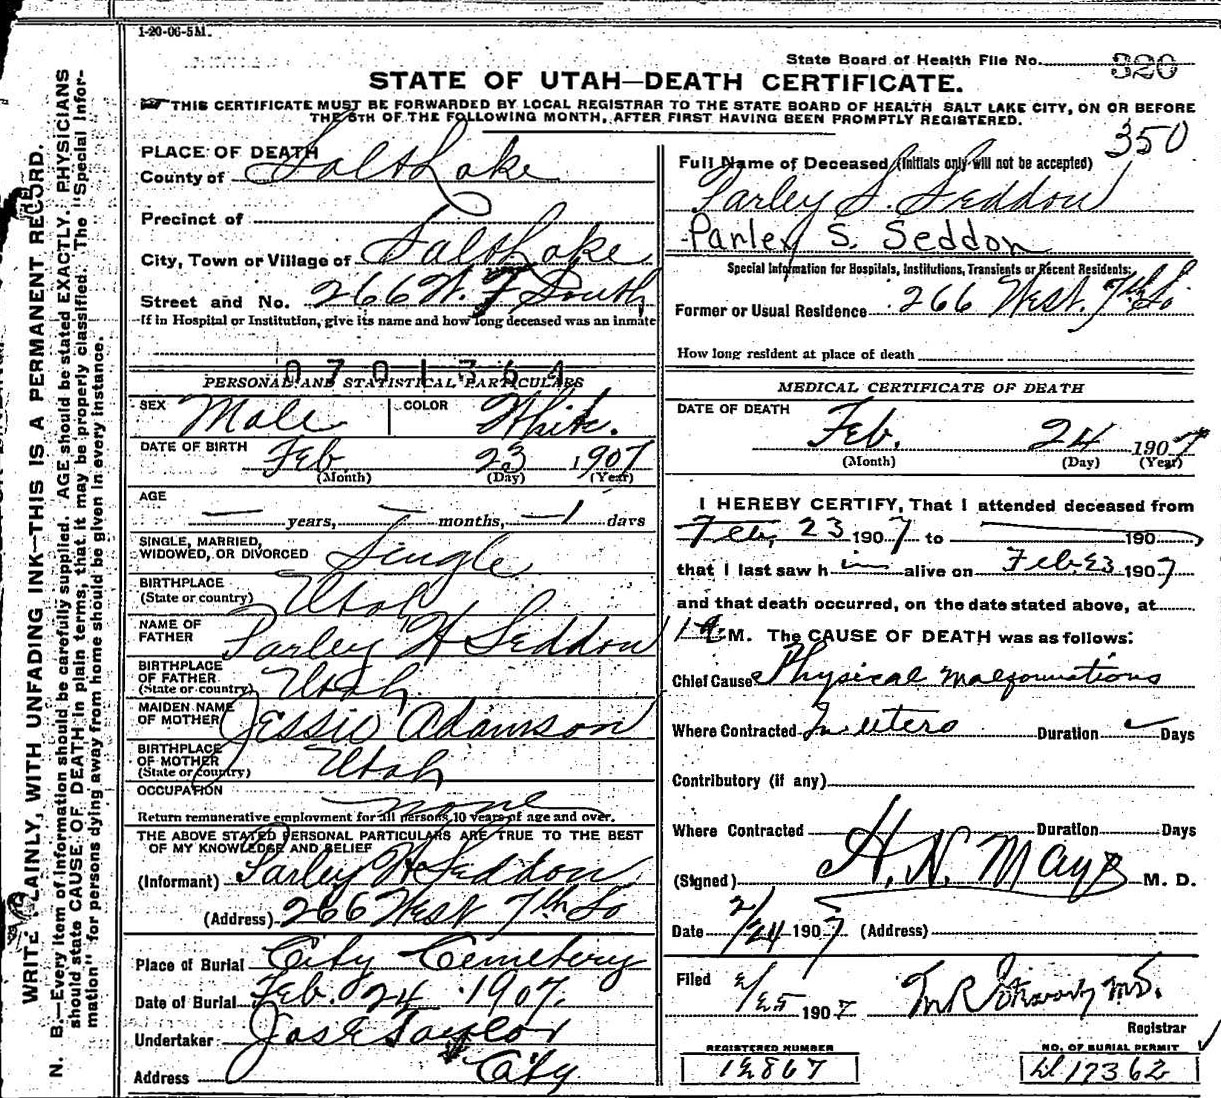 1-20-06-5M.
State Board of Health File No. 320
STATE OF UTAH—DEATH CERTIFICATE.
THIS CERTIFICATE MUST BE FORWARDED BY LOCAL REGISTRAR TO THE STATE BOARD OF HEALTH SALT LAKE CITY, ON OR BEFORE
THE 5TH OF THE FOLLOWING MONTH, AFTER FIRST HAVING BEEN PROMPTLY REGISTERED.
350
PLACE OF DEATH
County of Salt Lake
Precinct of
City, Town or Village of Salt Lake
Street and No. 266 W. 7 South
If in Hospital or Institution, give its name and how long deceased was an inmate
0701364
PERSONAL AND STATISTICAL PARTICULARS
SEX Male COLOR White.
DATE OF BIRTH Feb 23 1907
(Month) (Day) (Year)
AGE
— years, — months, — 1 days
SINGLE, MARRIED,
WIDOWED, OR DIVORCED Single
BIRTHPLACE
(State or country) Utah
NAME OF
FATHER Parley H Seddon
BIRTHPLACE
OF FATHER
(State or country) Utah.
MAIDEN NAME
OF MOTHER Jessie Adamson
BIRTHPLACE
OF MOTHER
(State or country) Utah
OCCUPATION none
Return remunerative employment for all persons 10 years of age and over.
THE ABOVE STATED PERSONAL PARTICULARS ARE TRUE TO THE BEST
OF MY KNOWLEDGE AND RELIEF
(Informant) Parley H Seddon
(Address) 266 West 7th So
Place of Burial City Cemetery
Date of Burial Feb. 24 1907.
Undertaker Jos E Taylor
Address City
Full Name of Deceased (Initials only will not be accepted)
Parley S. Seddon
Parley S. Seddon
Special Information for Hospitals, Institutions, Transients or Recent Residents:
Former or Usual Residence 266 West. 7th So
How long resident at place of death
MEDICAL CERTIFICATE OF DEATH
DATE OF DEATH
Feb. 24 1907
(Month) (Day) (Year)
I HEREBY CERTIFY, That I attended deceased from
Feb, 23 1907 to 190
that I last saw h im alive on Feb. 23 1907
and that death occurred, on the date stated above, at
M. The CAUSE OF DEATH was as follows:
Chief Cause Physical malformations
Where Contracted In utero Duration Days
Contributory (if any)
Where Contracted Duration Days
(Signed) H. N. Mayo M. D.
Date 2/24 1907 (Address)
Filed 2/25 1907
Registrar
REGISTERED NUMBER
12867
NO. OF BURIAL PERMIT
17362
WRITE PLAINLY, WITH UNFADING INK—THIS IS A PERMANENT RECORD.
N. B.—Every item of information should be carefully supplied. AGE should be stated EXACTLY. PHYSICIANS
should state CAUSE OF DEATH in plain terms, that it may be properly classified. The "Special Infor-
mation" for persons dying away from home should be given in every instance.